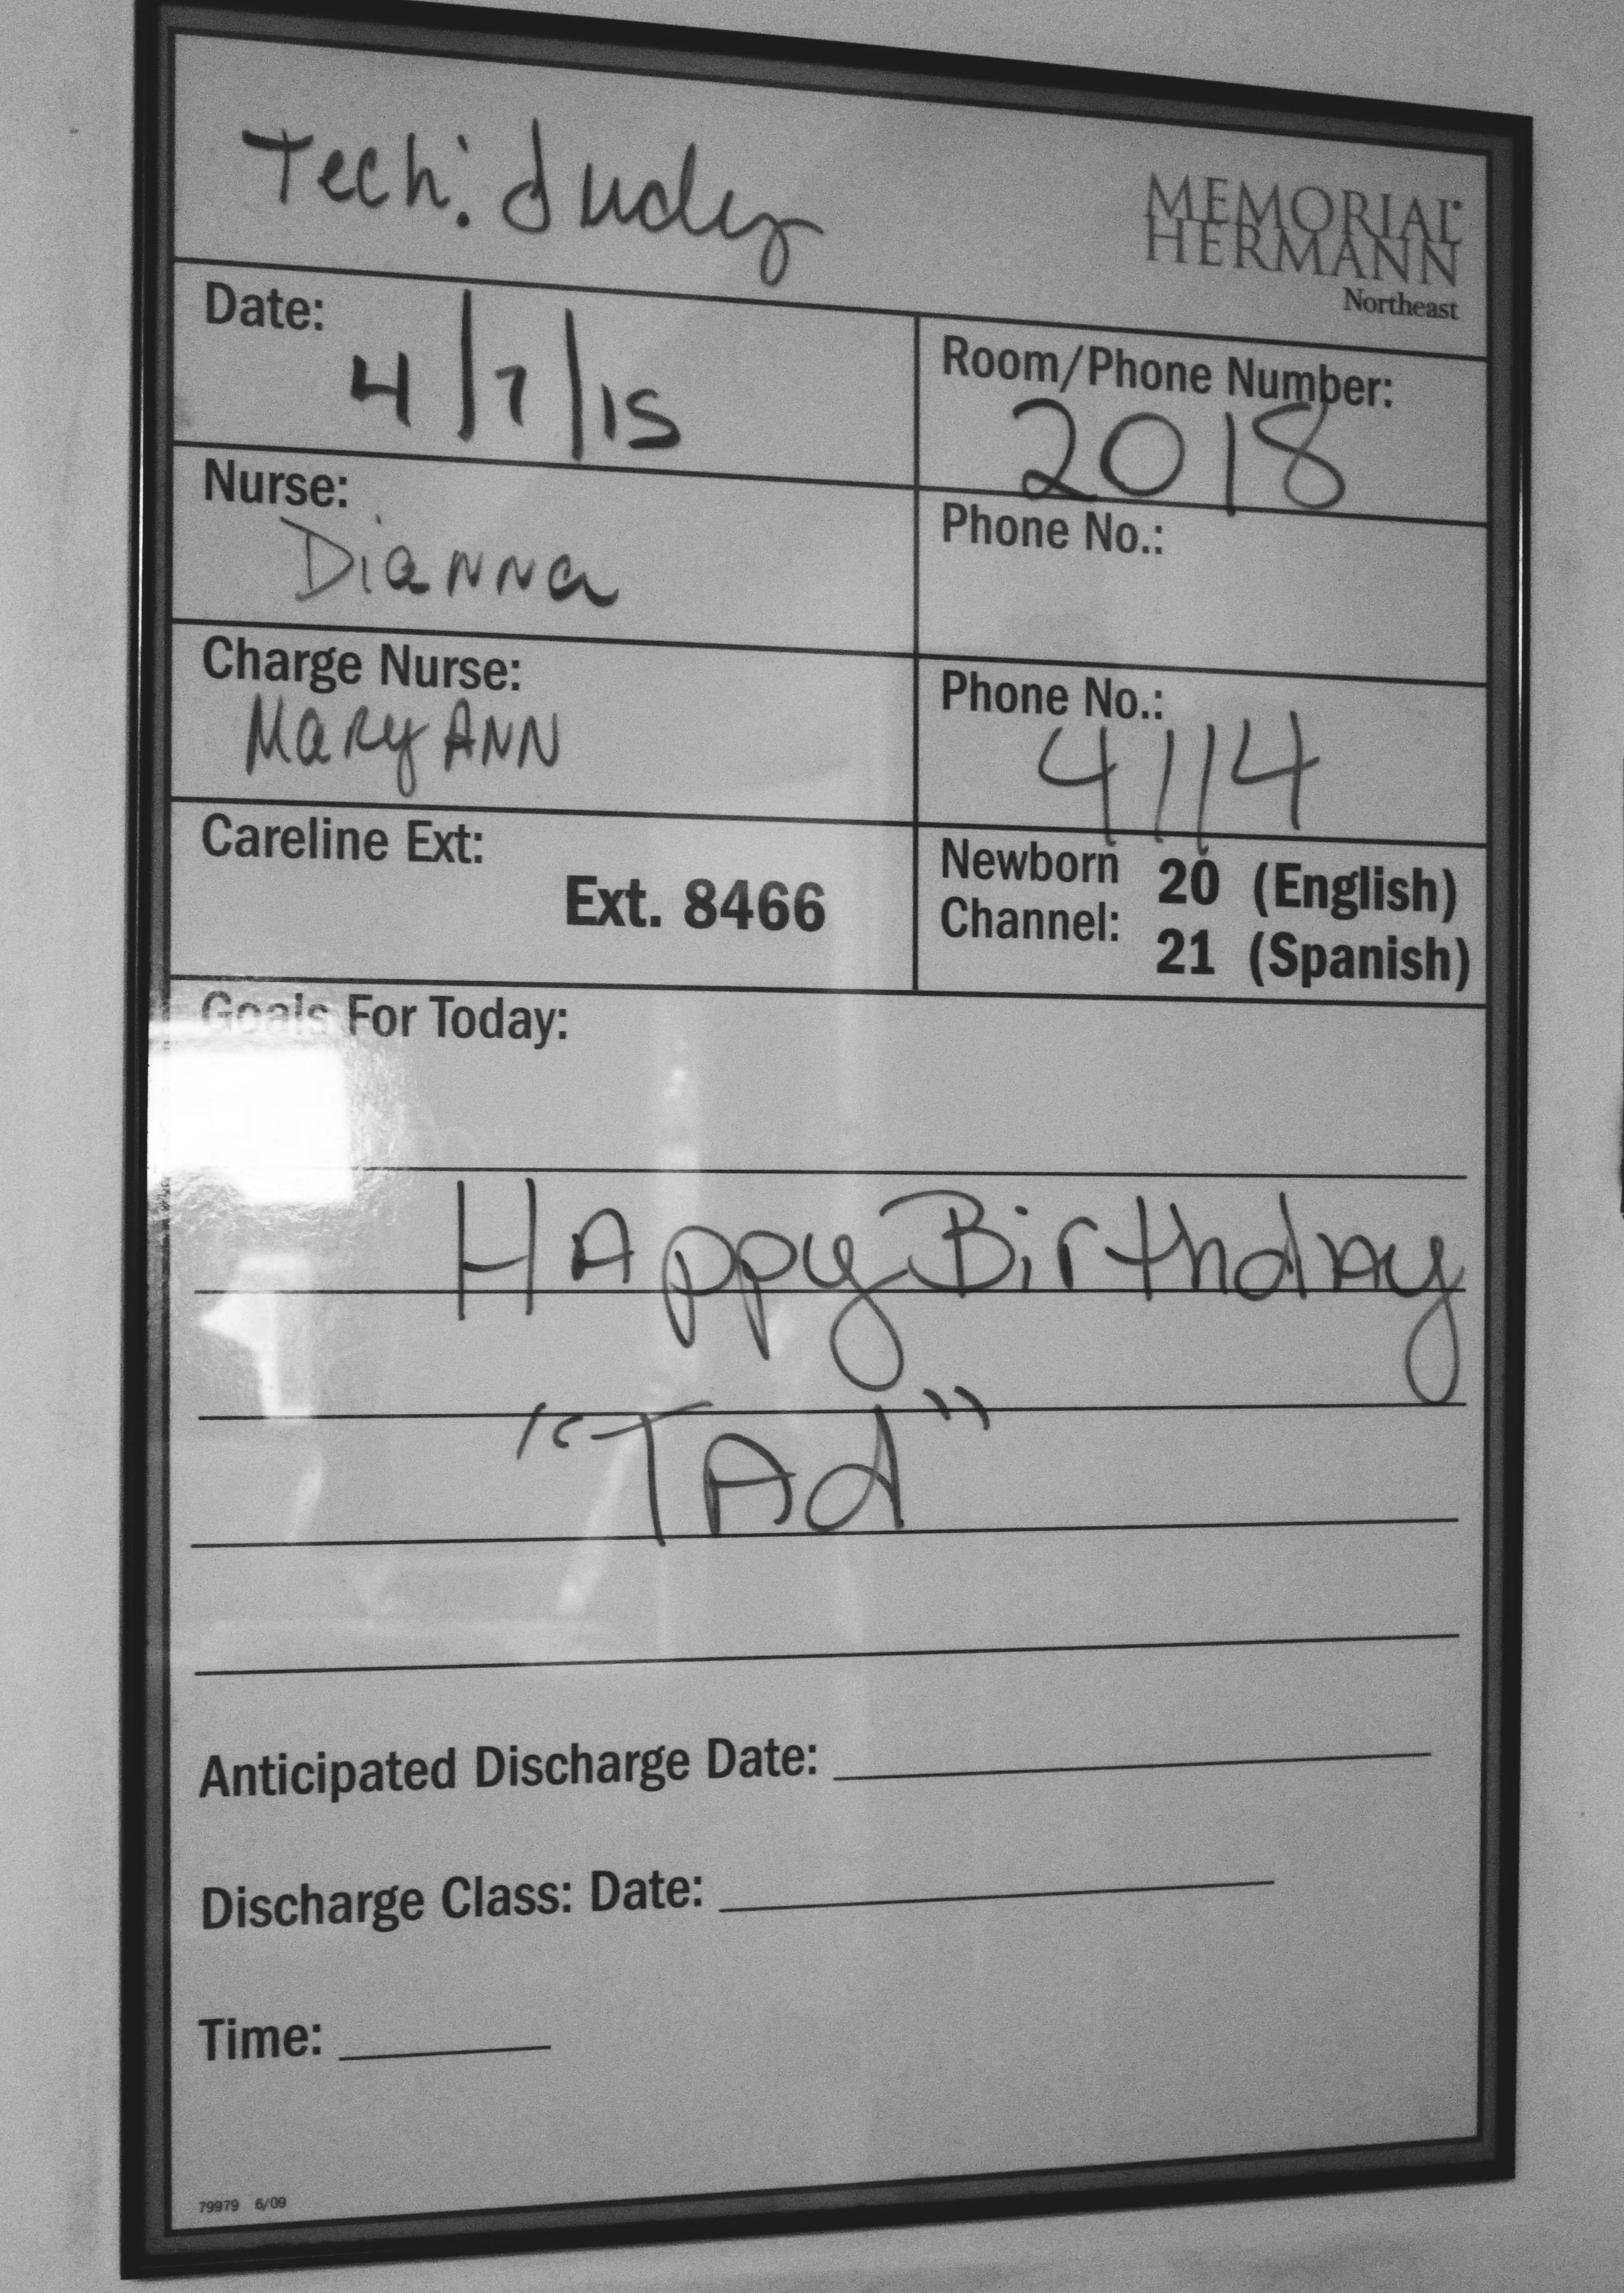 Tech: Judy
MEMORIAL
HERMANN
Northeast
Date: 4/7/15
Room/Phone Number: 2018
Nurse: Dianna
Phone No.:
Charge Nurse: Mary ANN
Phone No.: 4114
Careline Ext: Ext. 8466
Newborn Channel: 20 (English)
21 (Spanish)
Goals For Today:
HAppy Birthday
"TAd"
Anticipated Discharge Date:
Discharge Class: Date:
Time:
79979 6/09